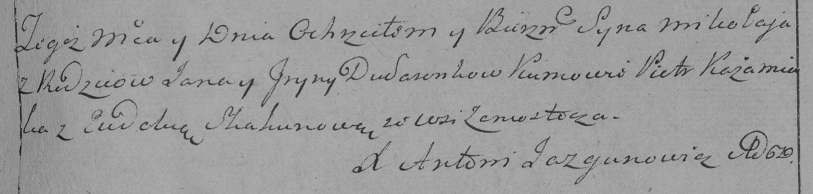 Tegoż Mca y Dnia Ochrzciłem y Bierzm Syna mikołaja
z Rodziców Jana y Jryny Dudaronkow Kumowie Pietr Kazamia
ka z Eudokią Skakunową ze wsi Zamostocza.
X Antoni Jazgunowicz